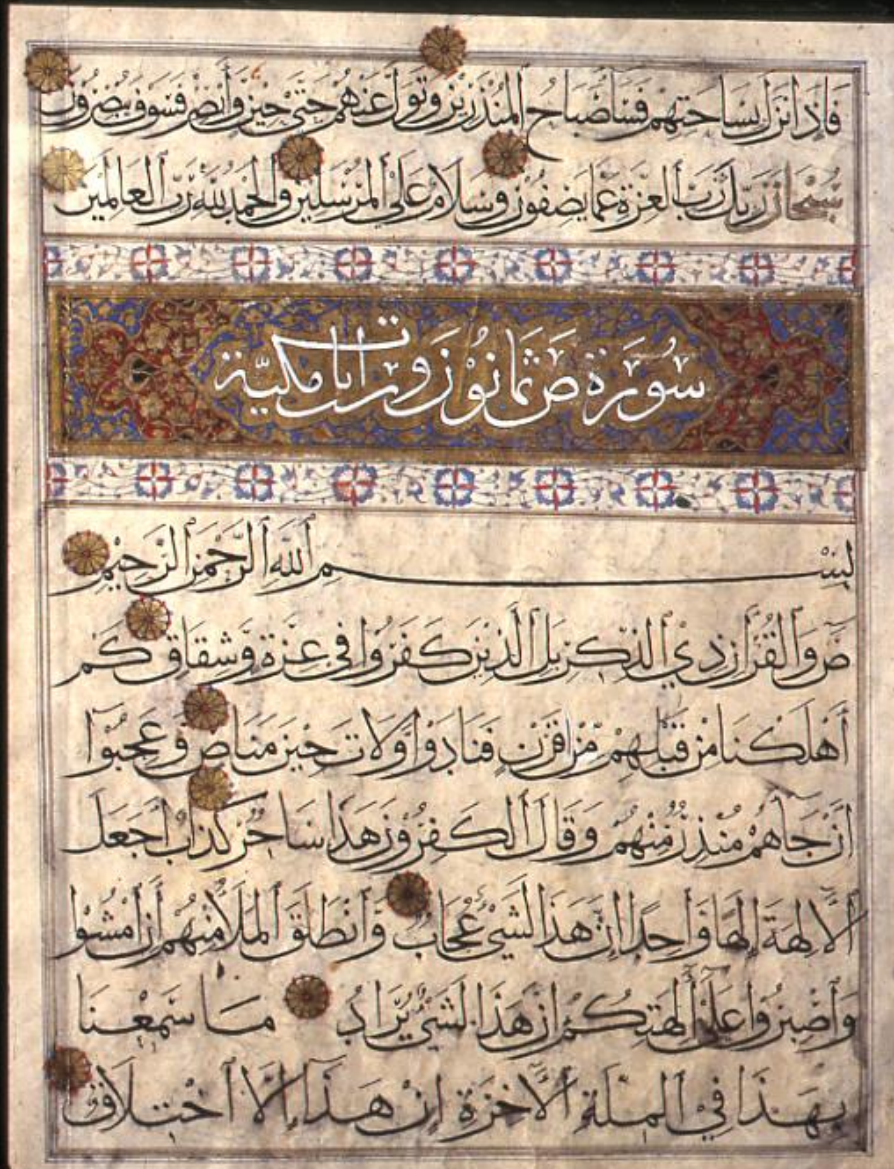 فإذا نزل بساحتهم فساء صباح المنذرين وتول عنهم حتى حين وأبصر فسوف يبصرون
سبحان ربك رب العزة عما يصفون وسلام على المرسلين والحمد لله رب العالمين
سورة ص ثمانون وست آيات مكية
بسم الله الرحمن الرحيم
صٓ وَالْقُرْآنِ ذِي الذِّكْرِ بَلِ الَّذِينَ كَفَرُوا فِي عِزَّةٍ وَشِقَاقٍ كَمْ
أَهْلَكْنَا مِنْ قَبْلِهِمْ مِنْ قَرْنٍ فَنَادَوْا وَلَاتَ حِينَ مَنَاصٍ وَعَجِبُوا
أَنْ جَاءَهُمْ مُنْذِرٌ مِنْهُمْ وَقَالَ الْكَفِرُونَ هَذَا سَاحِرٌ كَذَّابٌ أَجَعَلَ
الْآلِهَةَ إِلَهًا وَاحِدًا إِنَّ هَذَا لَشَيْءٌ عُجَابٌ وَانْطَلَقَ الْمَلَأُ مِنْهُمْ أَنِ امْشُوا
وَاصْبِرُوا عَلَى آلِهَتِكُمْ إِنَّ هَذَا لَشَيْءٌ يُرَادُ مَا سَمِعْنَا
بِهَذَا فِي الْمِلَّةِ الْآخِرَةِ إِنْ هَذَا إِلَّا اخْتِلَاقٌ